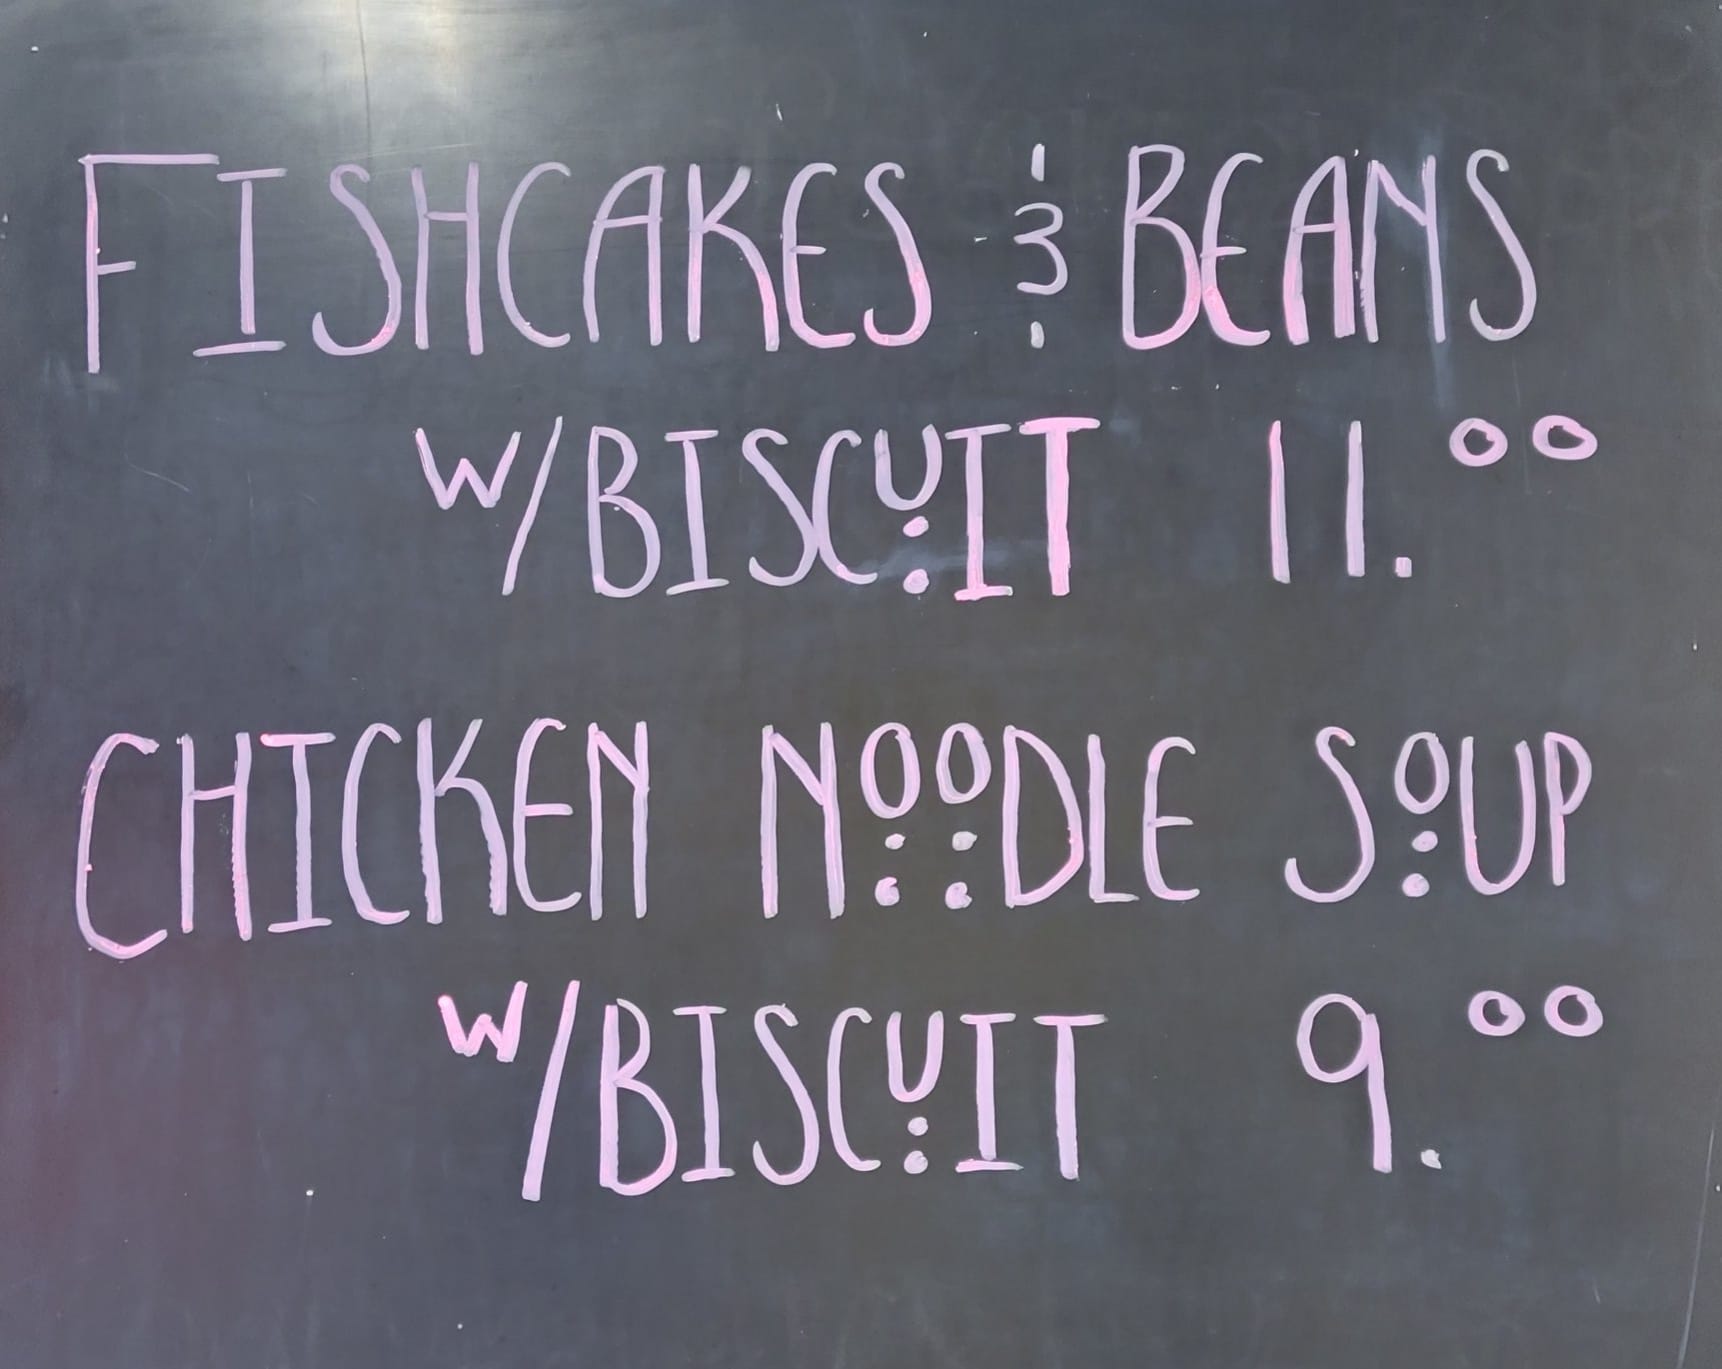 FISHCAKES & BEANS
W/BISCUIT 11.00
CHICKEN NOODLE SOUP
W/BISCUIT 9.00